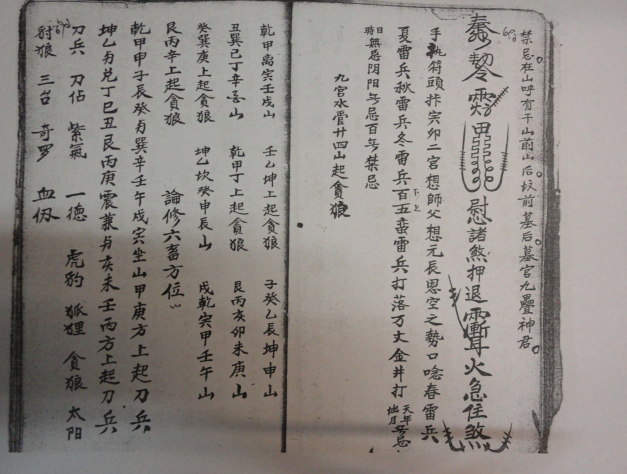 禁忌在山呼有千山前山后坟前墓后墓官九疊神君
慰諸煞押退火急住煞
手执符頭寅卯二宫想師父想元辰思空之勢口唸春雷兵
夏雷兵秋雷兵冬雷兵百五蛮雷兵打落万丈金井打
日時無忌阴阳年忌百年禁忌
九宫水管廿四山起貪狼
乾甲离寅壬戌山 壬乙坤上起貪狼 子癸乙辰坤申山
丑巽己丁辛亥山 乾甲丁上起貪狼 艮丙亥卯未庚山
癸巽庚上起貪狼 坤乙坎癸申辰山 戌乾寅甲壬午山
艮丙辛上起貪狼 論修六畜方位
乾甲申子辰癸巽辛壬午戌寅坐山甲庚方上起刀兵
坤乙兑丁巳丑艮丙庚震亥未壬丙方上起刀兵
刀兵 刀佔 紫氣 一德 虎豹 狐狸 貪狼 太阳
豺狼 三台 奇罗 血